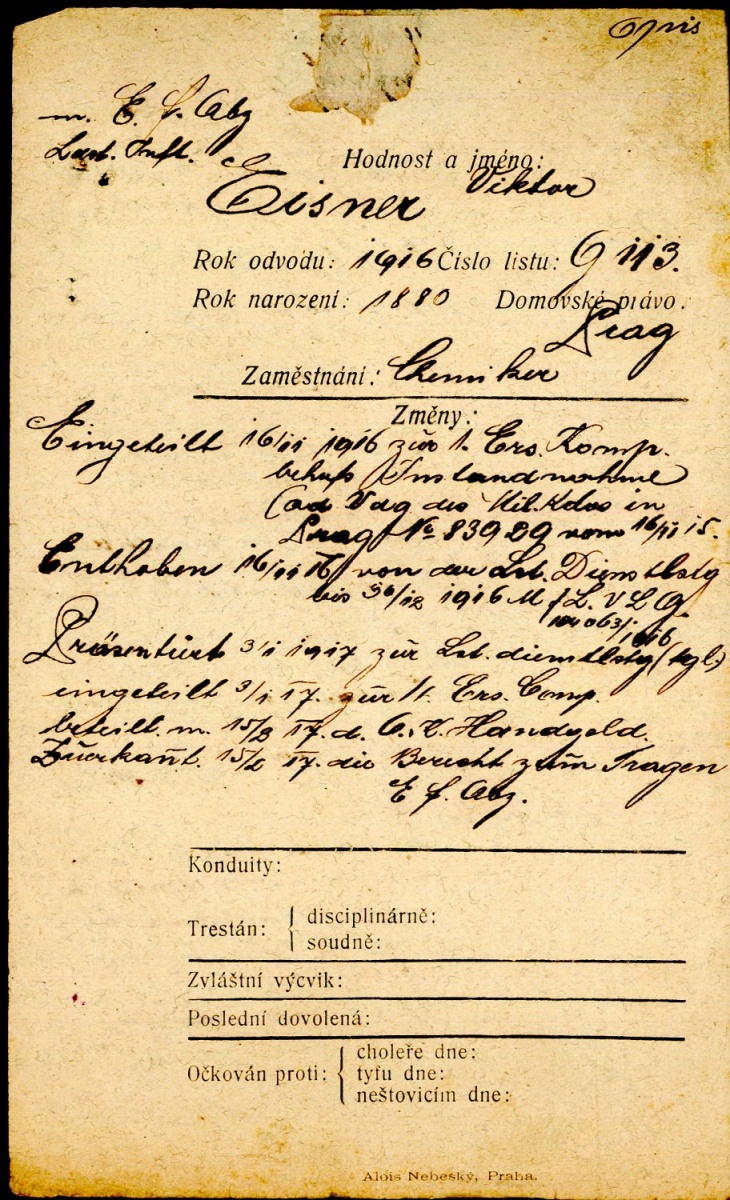 Opis
m. E. f. Abz
Ldst. Inft.
Hodnost a jméno:
Eisner Viktor
Rok odvodu: 1916 Číslo listu: G 113.
Rok narození: 1880 Domovské právo.
Prag
Zaměstnání: Chemiker
Změny:
Eingeteilt 16/11 1916 zur 1. Ers. Komp.
behufs Instandnahme
(ad Vdg des Mil. Kdos in
Prag No 83929 vom 16/11 15.
Enthoben 16/11 16 von der Lst. Dienstlstg
bis 30/12 1916 M f L. V L G
1916
Präsentiert 3/1 1917 zur Lst. dienstlstg (tgl.)
eingeteilt 3/1 17. zur 1. Ers. Comp.
beteilt. m. 15/2 17. d. Handgeld.
Zuerkannt. 15/2 17. die Berecht zum Tragen
E f. Abz.
Konduity:
Trestán: { disciplinárně:
soudně:
Zvláštní výcvik:
Poslední dovolená:
Očkován proti: { choleře dne:
tyfu dne:
neštovicím dne:
Alois Nebeský, Praha.